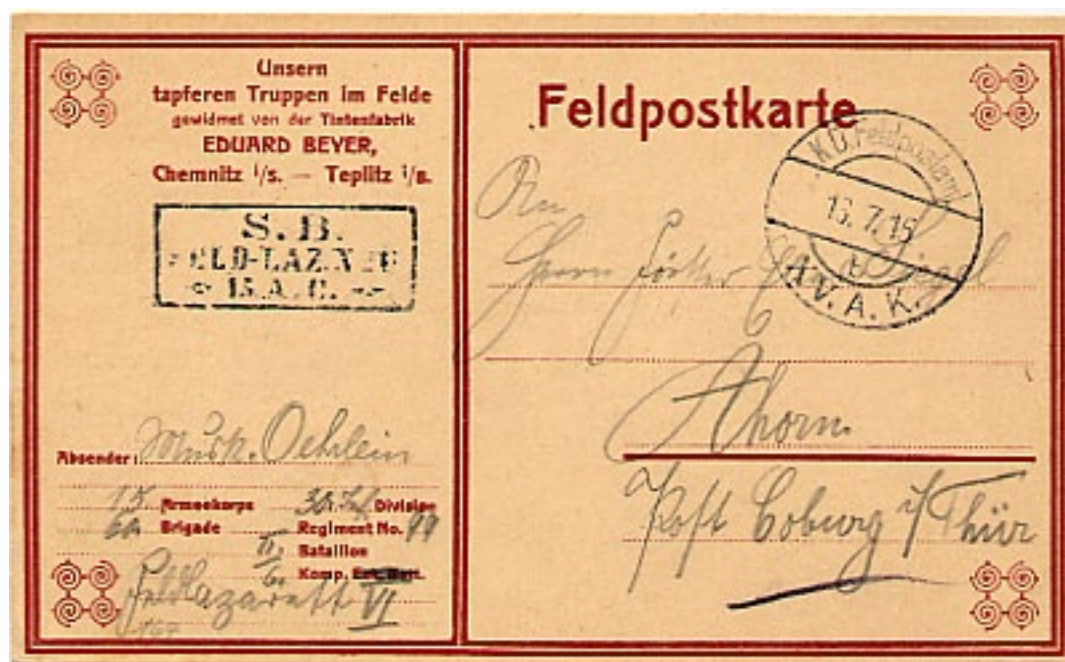 Unsern
tapferen Truppen im Felde
gewidmet von der Tintenfabrik
EDUARD BEYER,
Chemnitz i/S. — Teplitz i/B.
S. B.
15. A. C.
Absender: Musk. Oehrlein
15. Armeekorps 30. Inf. Division
60. Brigade Regiment No. 99
II. Bataillon
6. Komp.
Feldlazarett VI
Feldpostkarte
K.D. Feldpostamt
15. 7. 15
b
XV. A. K.
An
Herrn Förster
Ahorn
Post Coburg i/Thür